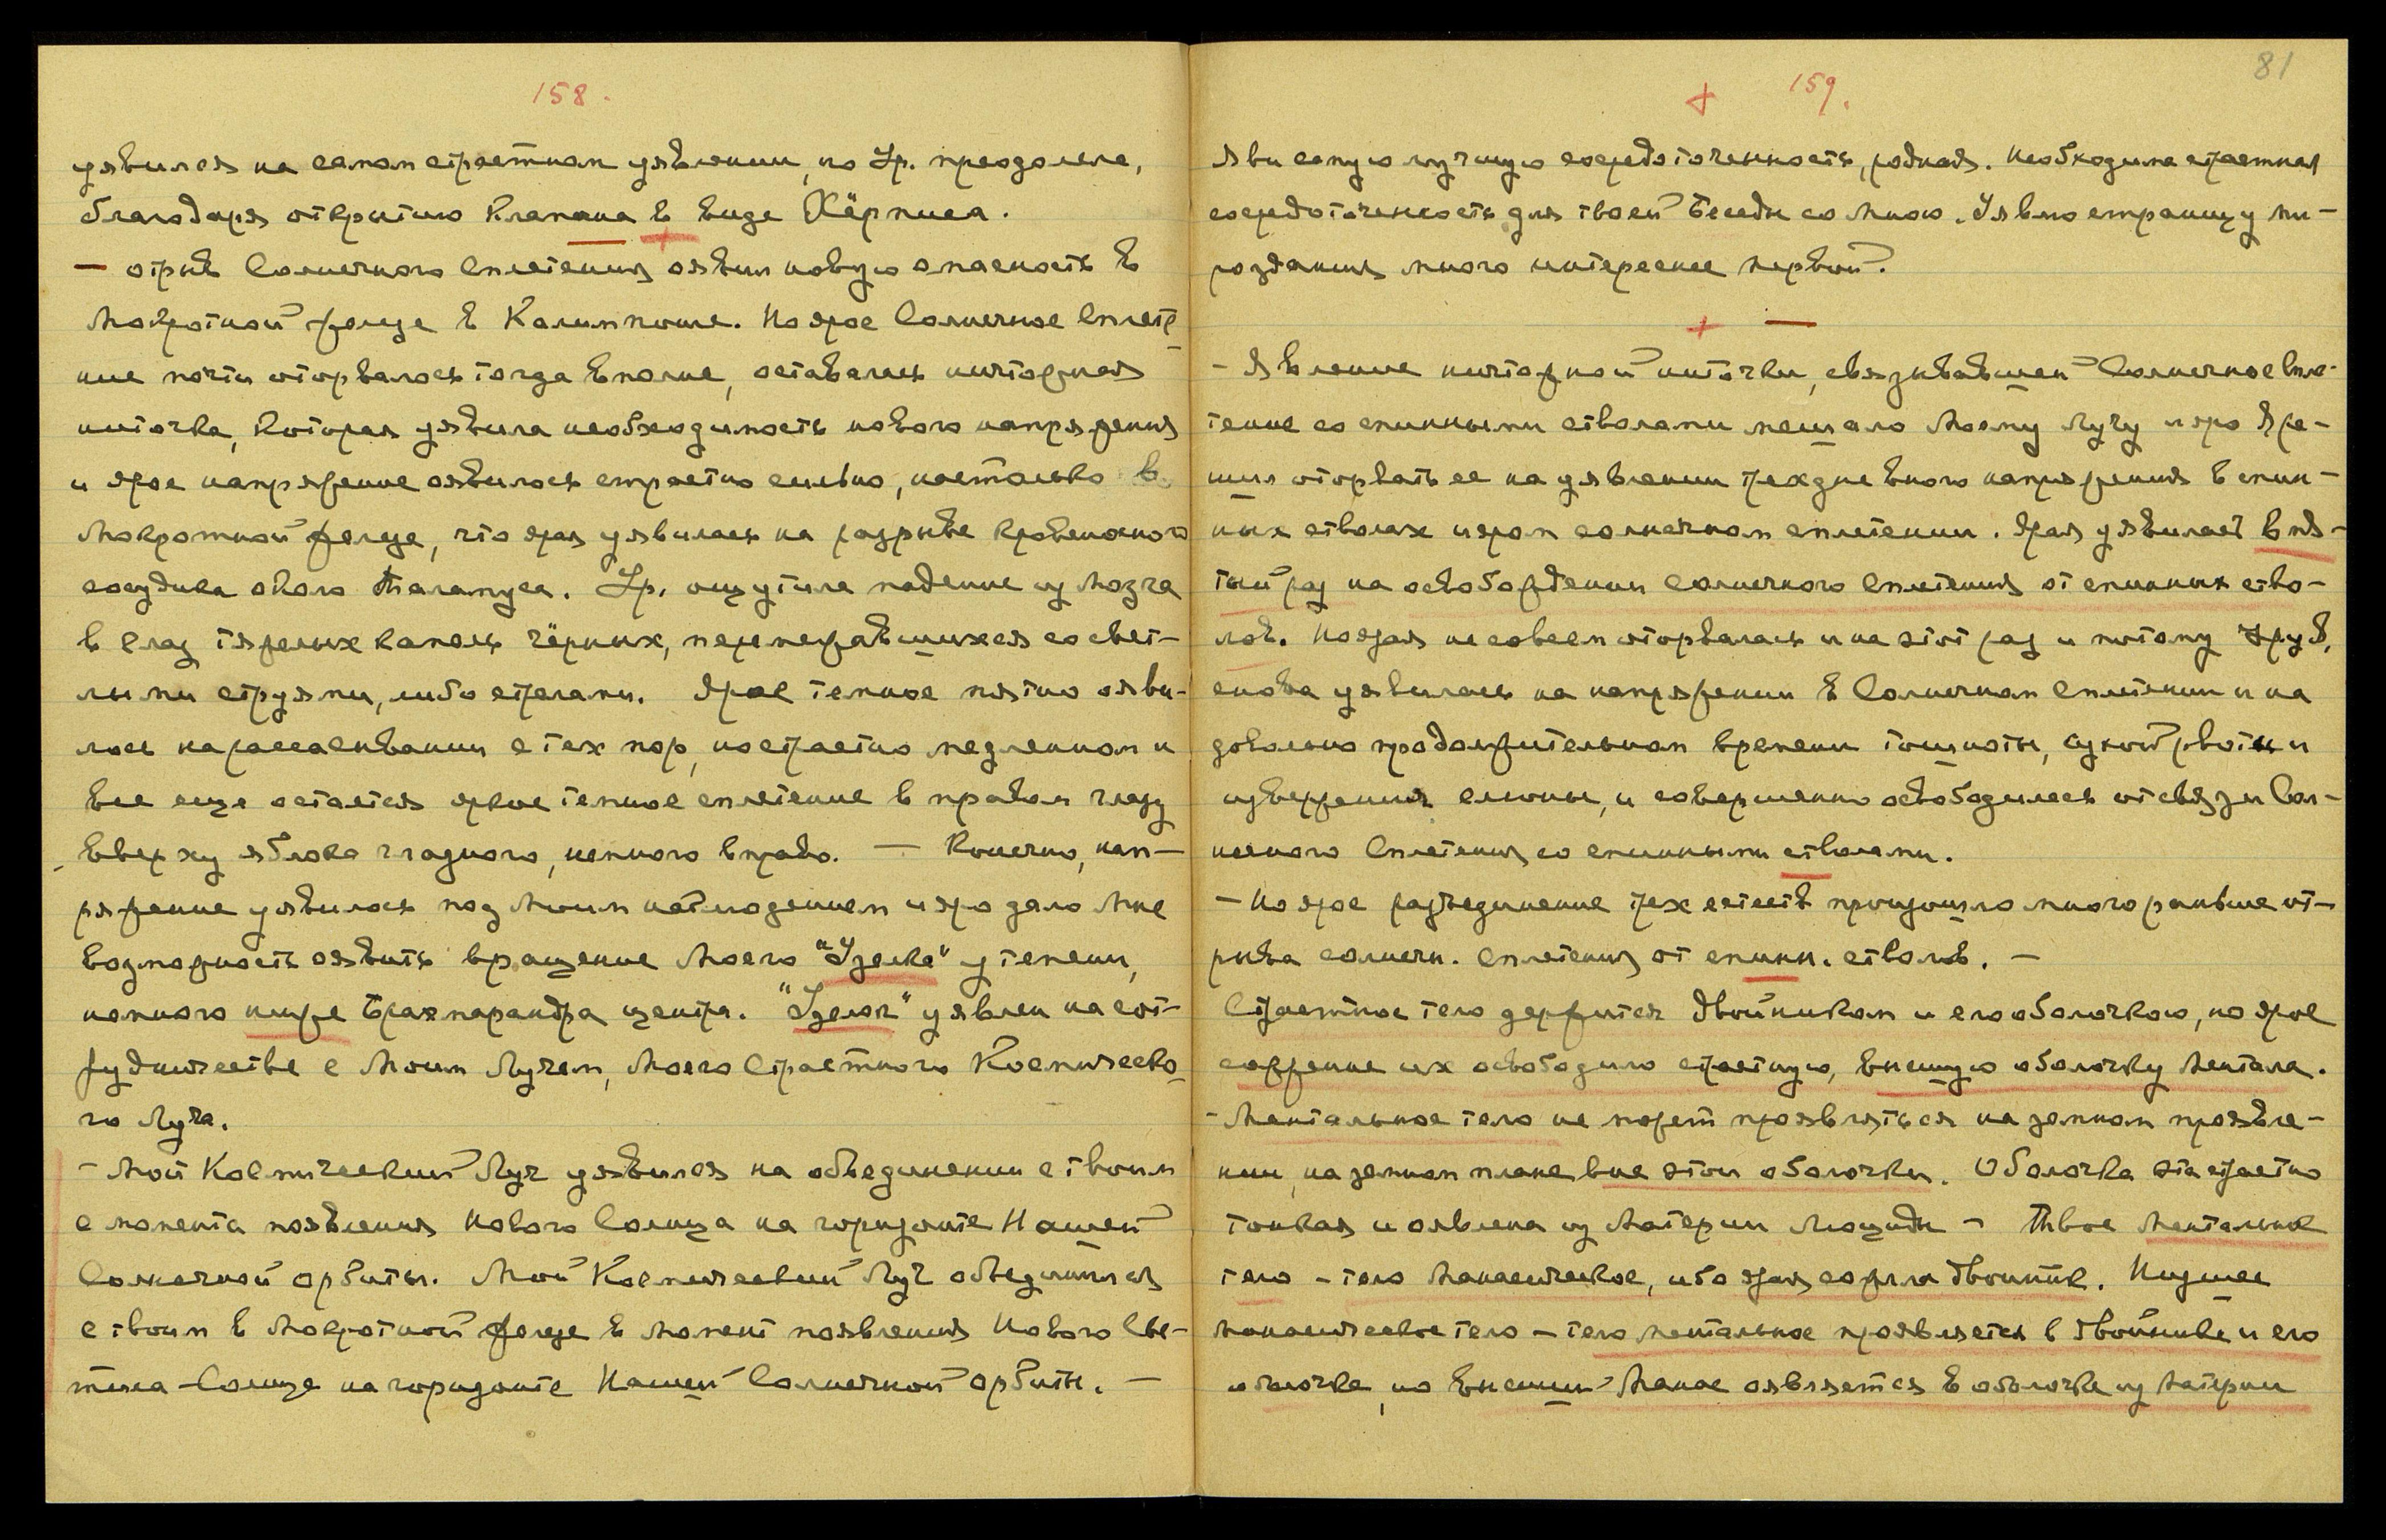 158.
уявился на самом страстном уявлении, но Ур. преодолела,
благодаря открытию Клапана в виде Хёрписа.
— отрыв Солнечного Сплетения оявил новую опасность в
Мокротной железе в Калимпонге. Но ярое Солнечное Сплете-
ние почти оторвалось тогда вполне, оставалась ничтожная
ниточка, которая уявила необходимость нового напряжения
и ярое напряжение оявилось страстно сильно, настолько в
Мокротной железе, что ярая уявилась на разрыве кровеносного
сосудика около Таламуса. Ур. ощутила падение из Мозга
в глаз тяжелых капель чёрных, перемежавшихся со свет-
лыми струями, либо стрелами. Ярое темное пятноояви-
лось на рассасывании с тех пор, но страстно медленном и
все еще остается яркое темное сплетение в правом глазу
вверху яблока глазного, немного вправо. — Конечно, нап-
ряжение уявилось под Моим наблюдением и яро дало Мне
возможность оявить вращение Моего "Узелка" у темени,
немного ниже Брахмарандра центра. "Узелок" уявлен на сот-
рудничестве с Моим Лучем, Моего Страстного Космическо-
го Луча.
- Мой Космический Луч уявился на объединении с твоим
с момента появления Нового Солнца на горизонте Нашей
Солнечной орбиты. Мой Космический Луч объединился
с твоим в Мокротной железе в момент появления Нового Све-
тила-Солнца на горизонте Нашей Солнечной Орбиты. —
81
+ 159.
Яви самую лучшую сосредоточенность, родная. Необходима страстная
сосредоточенность для твоей Беседы со Мною. Уявлю страницу Ми-
роздания много интереснее первой.
+ —
- Явление ничтожной ниточки, связывавшей Солнечное Спле-
тение со спинными стволами мешало Моему Лучу и яро Я ре-
шил оторвать ее на уявлении трехдневного напряжения в спин-
ных стволах и яром солнечном сплетении. Ярая уявилась в пя-
тый раз на освобождении Солнечного Сплетения от спинных ство-
лов. Но ярая не совсем оторвалась и на этот раз и потому Урув.
снова уявилась на напряжении в Солнечном Сплетении и на
довольно продолжительном времени тошноты, сухой рвоты и
извержения слюны, и совершенно освободилась от связи Сол-
нечного Сплетения со спинными стволами.
- Но ярое разъединение трех естеств произошло много раньше от-
рыва солнечн. сплетения от спинн. стволов. —
Страстное тело держится двойником и его оболочкою, но ярое
сожжение их освободило страстную, внешнюю оболочку Ментала.
- Ментальное тело не может проявляться на земном проявле-
нии, на земном плане вне этой оболочки. Оболочка эта страстно
тонкая и оявлена из Материи Люциды - Твое Ментальное
тело - тело Манасическое, ибо ярая сожгла двойник. Низшее
манасическое тело - тело ментальное проявляется в двойнике и его
оболочке, но Высший Манас оявляется в оболочке из Материи